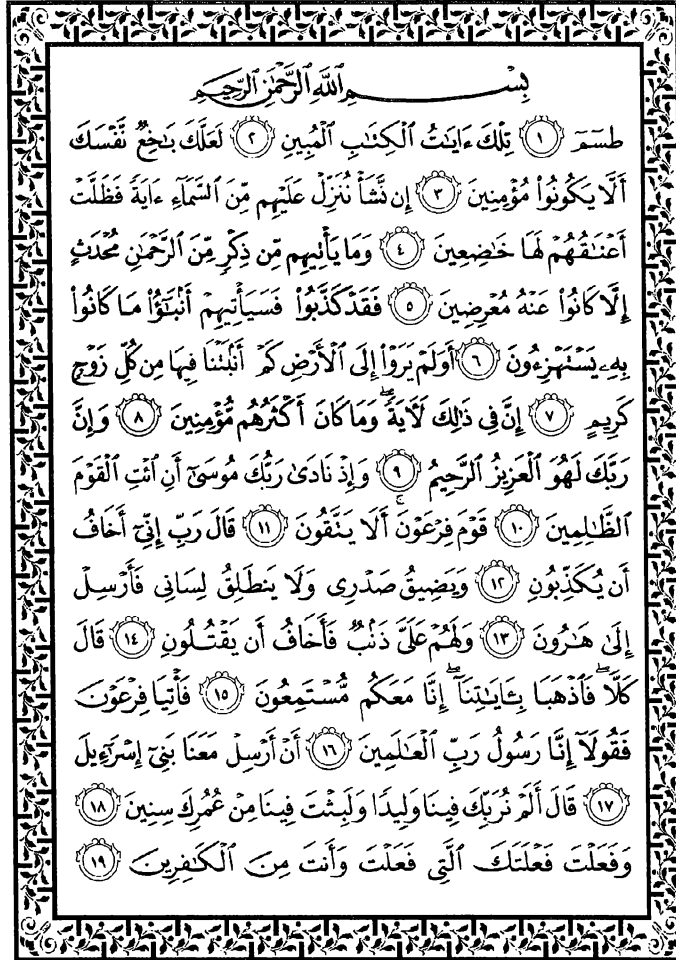 بِسۡمِ ٱللَّهِ ٱلرَّحۡمَٰنِ ٱلرَّحِيمِ
طسٓمٓ ١ تِلۡكَ ءَايَٰتُ ٱلۡكِتَٰبِ ٱلۡمُبِينِ ٢ لَعَلَّكَ بَٰخِعٞ نَّفۡسَكَ
أَلَّا يَكُونُواْ مُؤۡمِنِينَ ٣ إِن نَّشَأۡ نُنَزِّلۡ عَلَيۡهِم مِّنَ ٱلسَّمَآءِ ءَايَةٗ فَظَلَّتۡ
أَعۡنَٰقُهُمۡ لَهَا خَٰضِعِينَ ٤ وَمَا يَأۡتِيهِم مِّن ذِكۡرٖ مِّنَ ٱلرَّحۡمَٰنِ مُحۡدَثٍ
إِلَّا كَانُواْ عَنۡهُ مُعۡرِضِينَ ٥ فَقَدۡ كَذَّبُواْ فَسَيَأۡتِيهِمۡ أَنۢبَٰٓؤُاْ مَا كَانُواْ
بِهِۦ يَسۡتَهۡزِءُونَ ٦ أَوَلَمۡ يَرَوۡاْ إِلَى ٱلۡأَرۡضِ كَمۡ أَنۢبَتۡنَا فِيهَا مِن كُلِّ زَوۡجٖ
كَرِيمٍ ٧ إِنَّ فِي ذَٰلِكَ لَأٓيَةٗۖ وَمَا كَانَ أَكۡثَرُهُم مُّؤۡمِنِينَ ٨ وَإِنَّ
رَبَّكَ لَهُوَ ٱلۡعَزِيزُ ٱلرَّحِيمُ ٩ وَإِذۡ نَادَىٰ رَبُّكَ مُوسَىٰٓ أَنِ ٱئۡتِ ٱلۡقَوۡمَ
ٱلظَّٰلِمِينَ ١٠ قَوۡمَ فِرۡعَوۡنَۚ أَلَا يَتَّقُونَ ١١ قَالَ رَبِّ إِنِّيٓ أَخَافُ
أَن يُكَذِّبُونِ ١٢ وَيَضِيقُ صَدۡرِي وَلَا يَنطَلِقُ لِسَانِي فَأَرۡسِلۡ
إِلَىٰ هَٰرُونَ ١٣ وَلَهُمۡ عَلَيَّ ذَنۢبٞ فَأَخَافُ أَن يَقۡتُلُونِ ١٤ قَالَ
كَلَّاۖ فَٱذۡهَبَا بِـَٔايَٰتِنَآۖ إِنَّا مَعَكُم مُّسۡتَمِعُونَ ١٥ فَأۡتِيَا فِرۡعَوۡنَ
فَقُولَآ إِنَّا رَسُولُ رَبِّ ٱلۡعَٰلَمِينَ ١٦ أَنۡ أَرۡسِلۡ مَعَنَا بَنِيٓ إِسۡرَٰٓءِيلَ
١٧ قَالَ أَلَمۡ نُرَبِّكَ فِينَا وَلِيدٗا وَلَبِثۡتَ فِينَا مِنۡ عُمُرِكَ سِنِينَ ١٨
وَفَعَلۡتَ فَعۡلَتَكَ ٱلَّتِي فَعَلۡتَ وَأَنتَ مِنَ ٱلۡكَٰفِرِينَ ١٩